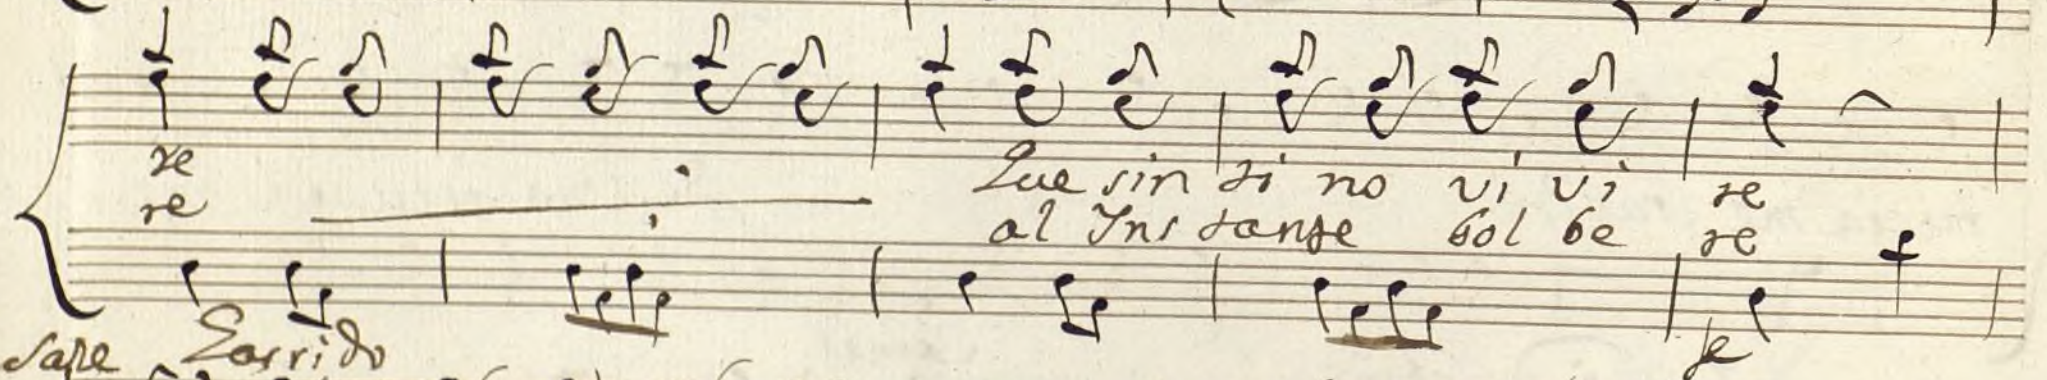 re
re
Que sin ti no vi vi re
al Ins tante bol be re
Sale Garrido